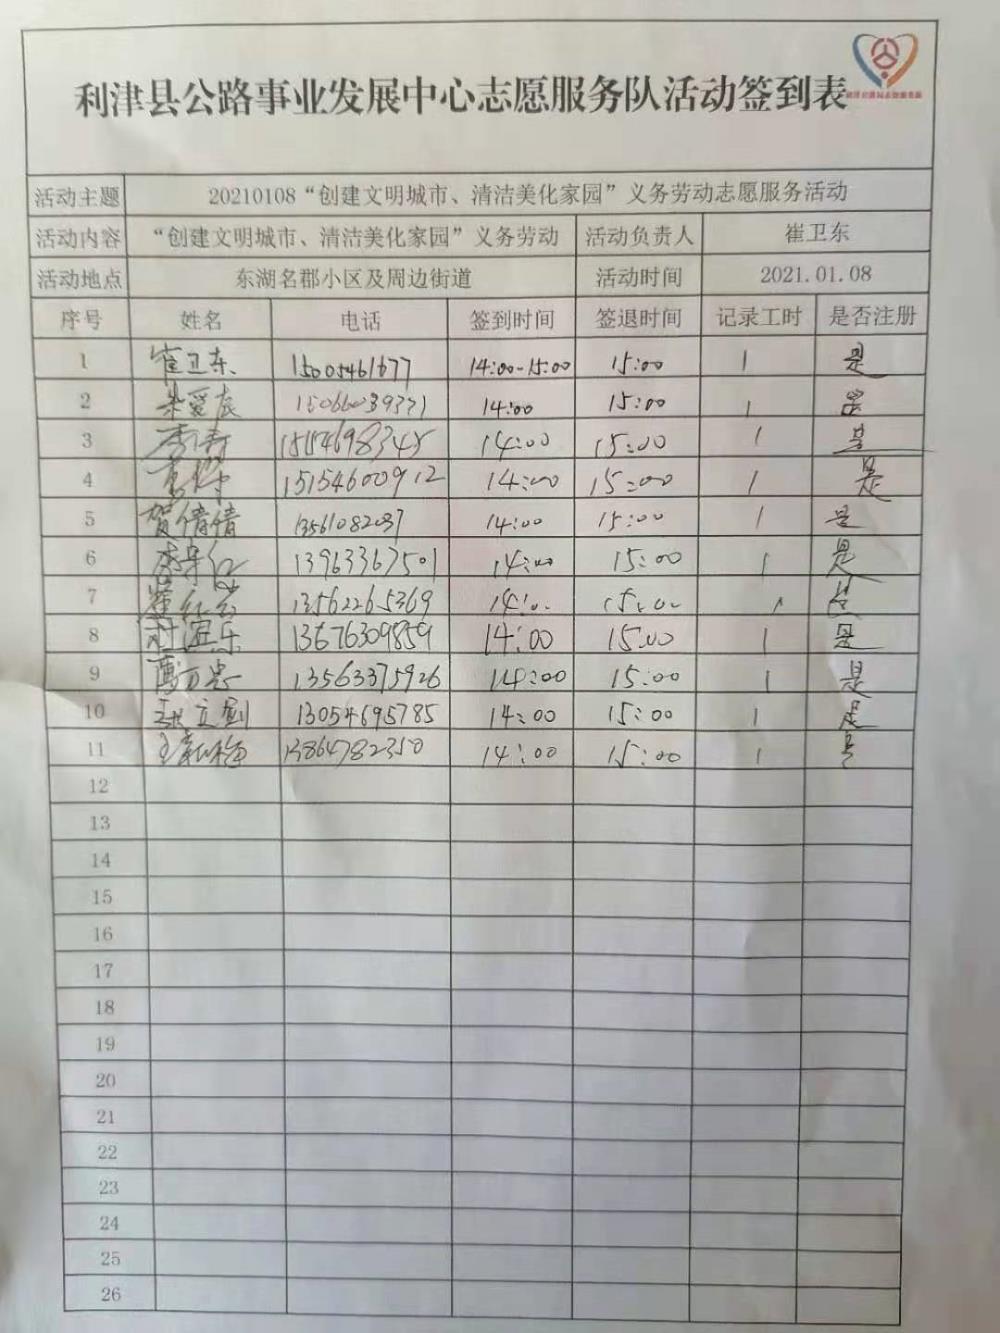 利津县公路事业发展中心志愿服务队活动签到表
活动主题 20210108“创建文明城市、清洁美化家园”义务劳动志愿服务活动
活动内容 “创建文明城市、清洁美化家园”义务劳动 活动负责人 崔卫东
活动地点 东湖名郡小区及周边街道 活动时间 2021.01.08
序号 姓名 电话 签到时间 签退时间 记录工时 是否注册
1 崔卫东 15005461677 14:00-15:00 15:00 1 是
2 14:00 15:00 1 是
3 14:00 15:00 1 是
4 15154600912 14:00 15:00 1 是
5 贺倩倩 14:00 15:00 1 是
6 13963367501 14:00 15:00 1 是
7 13562265369 14:00 15:00 1 是
8 杜宜乐 13676309859 14:00 15:00 1 是
9 13563375926 14:00 15:00 1 是
10 13054695785 14:00 15:00 1 是
11 13864782350 14:00 15:00 1 是
12
13
14
15
16
17
18
19
20
21
22
23
24
25
26